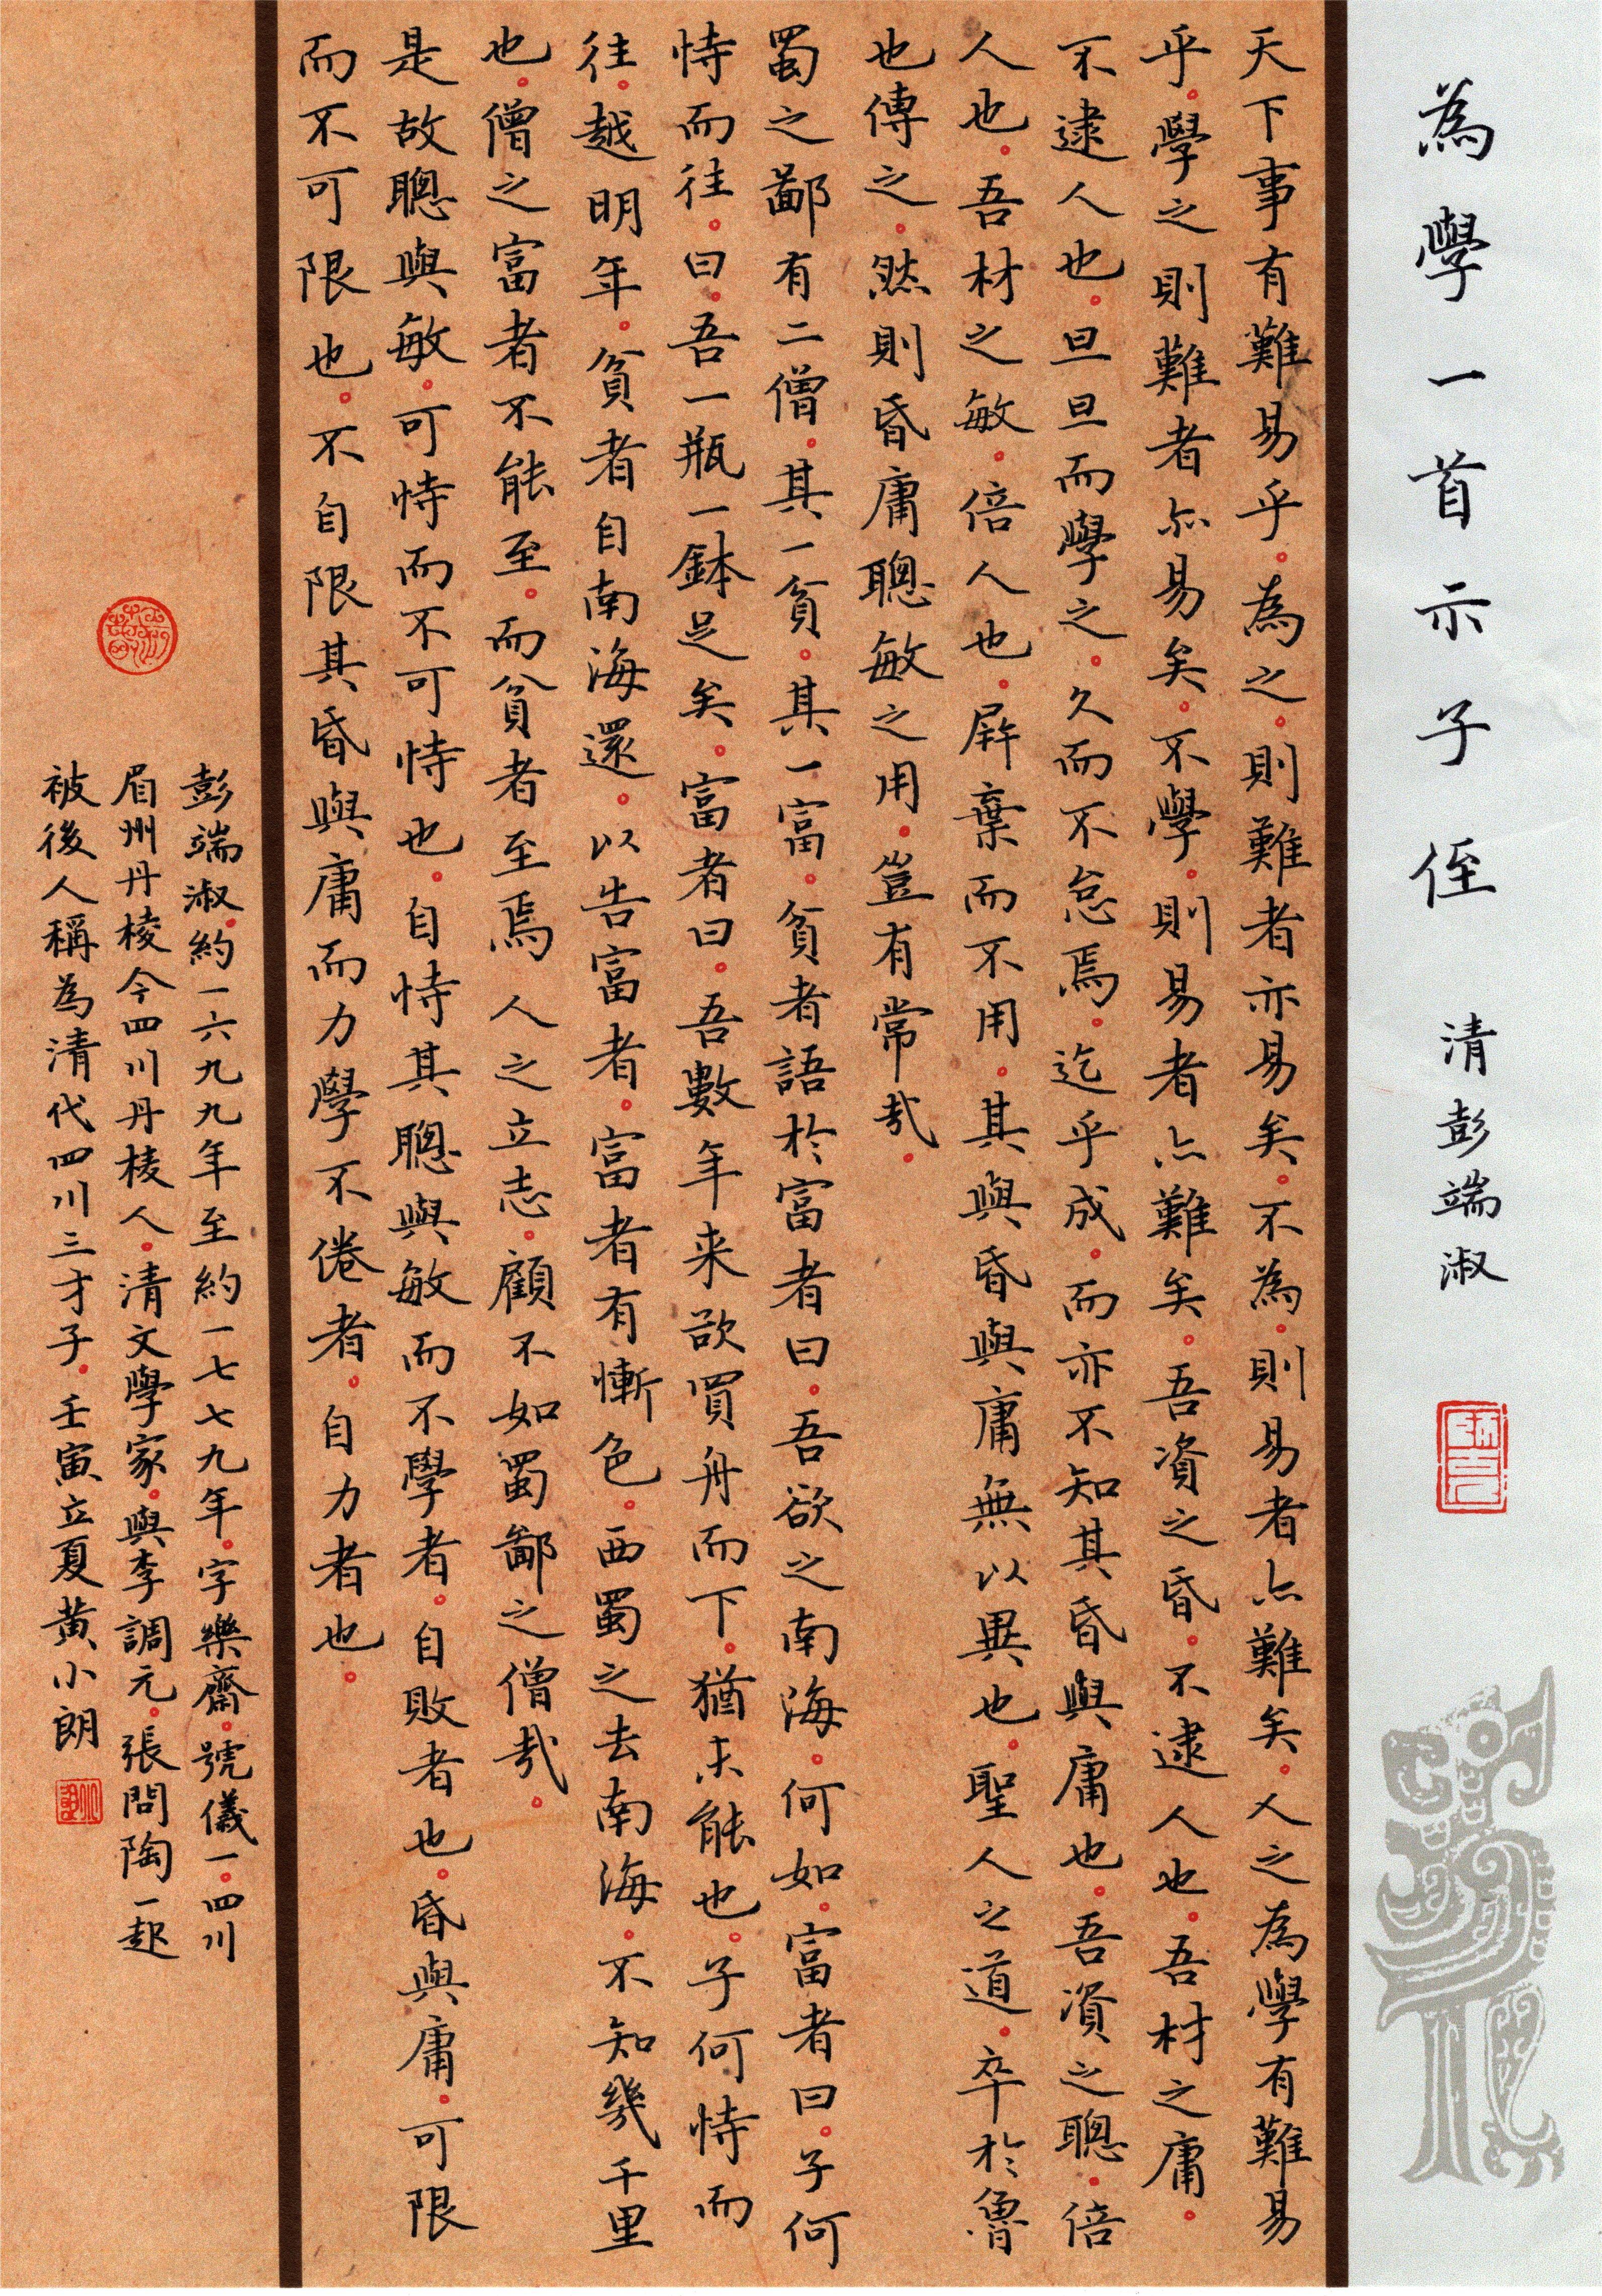 為學一首示子侄 清彭端淑
天下事有難易乎。為之。則難者亦易矣。不為。則易者亦難矣。人之為學有難易
乎。學之則難者亦易矣。不學。則易者亦難矣。吾資之昏。不逮人也。吾材之庸。
不逮人也。旦旦而學之。久而不怠焉。迄乎成。而亦不知其昏與庸也。吾資之聰。倍
人也。吾材之敏。倍人也。屏棄而不用。其與昏與庸無以異也。聖人之道。卒於魯
也傳之。然則昏庸聰敏之用。豈有常哉。
蜀之鄙有二僧。其一貧。其一富。貧者語於富者曰。吾欲之南海。何如。富者曰。子何
恃而往。曰。吾一瓶一鉢足矣。富者曰。吾數年来欲買舟而下。猶未能也。子何恃而
往。越明年。貧者自南海還。以告富者。富者有慚色。西蜀之去南海。不知幾千里
也。僧之富者不能至。而貧者至焉人之立志。顧不如蜀鄙之僧哉。
是故聰與敏。可恃而不可恃也。自恃其聰與敏而不學者。自敗者也。昏與庸。可限
而不可限也。不自限其昏與庸而力學不倦者。自力者也。
彭端淑。約一六九九年至約一七七九年。字樂齋。號儀一。四川
眉州丹棱今四川丹棱人。清文學家。與李調元。張問陶一起
被後人稱為清代四川三才子。壬寅立夏黃小朗